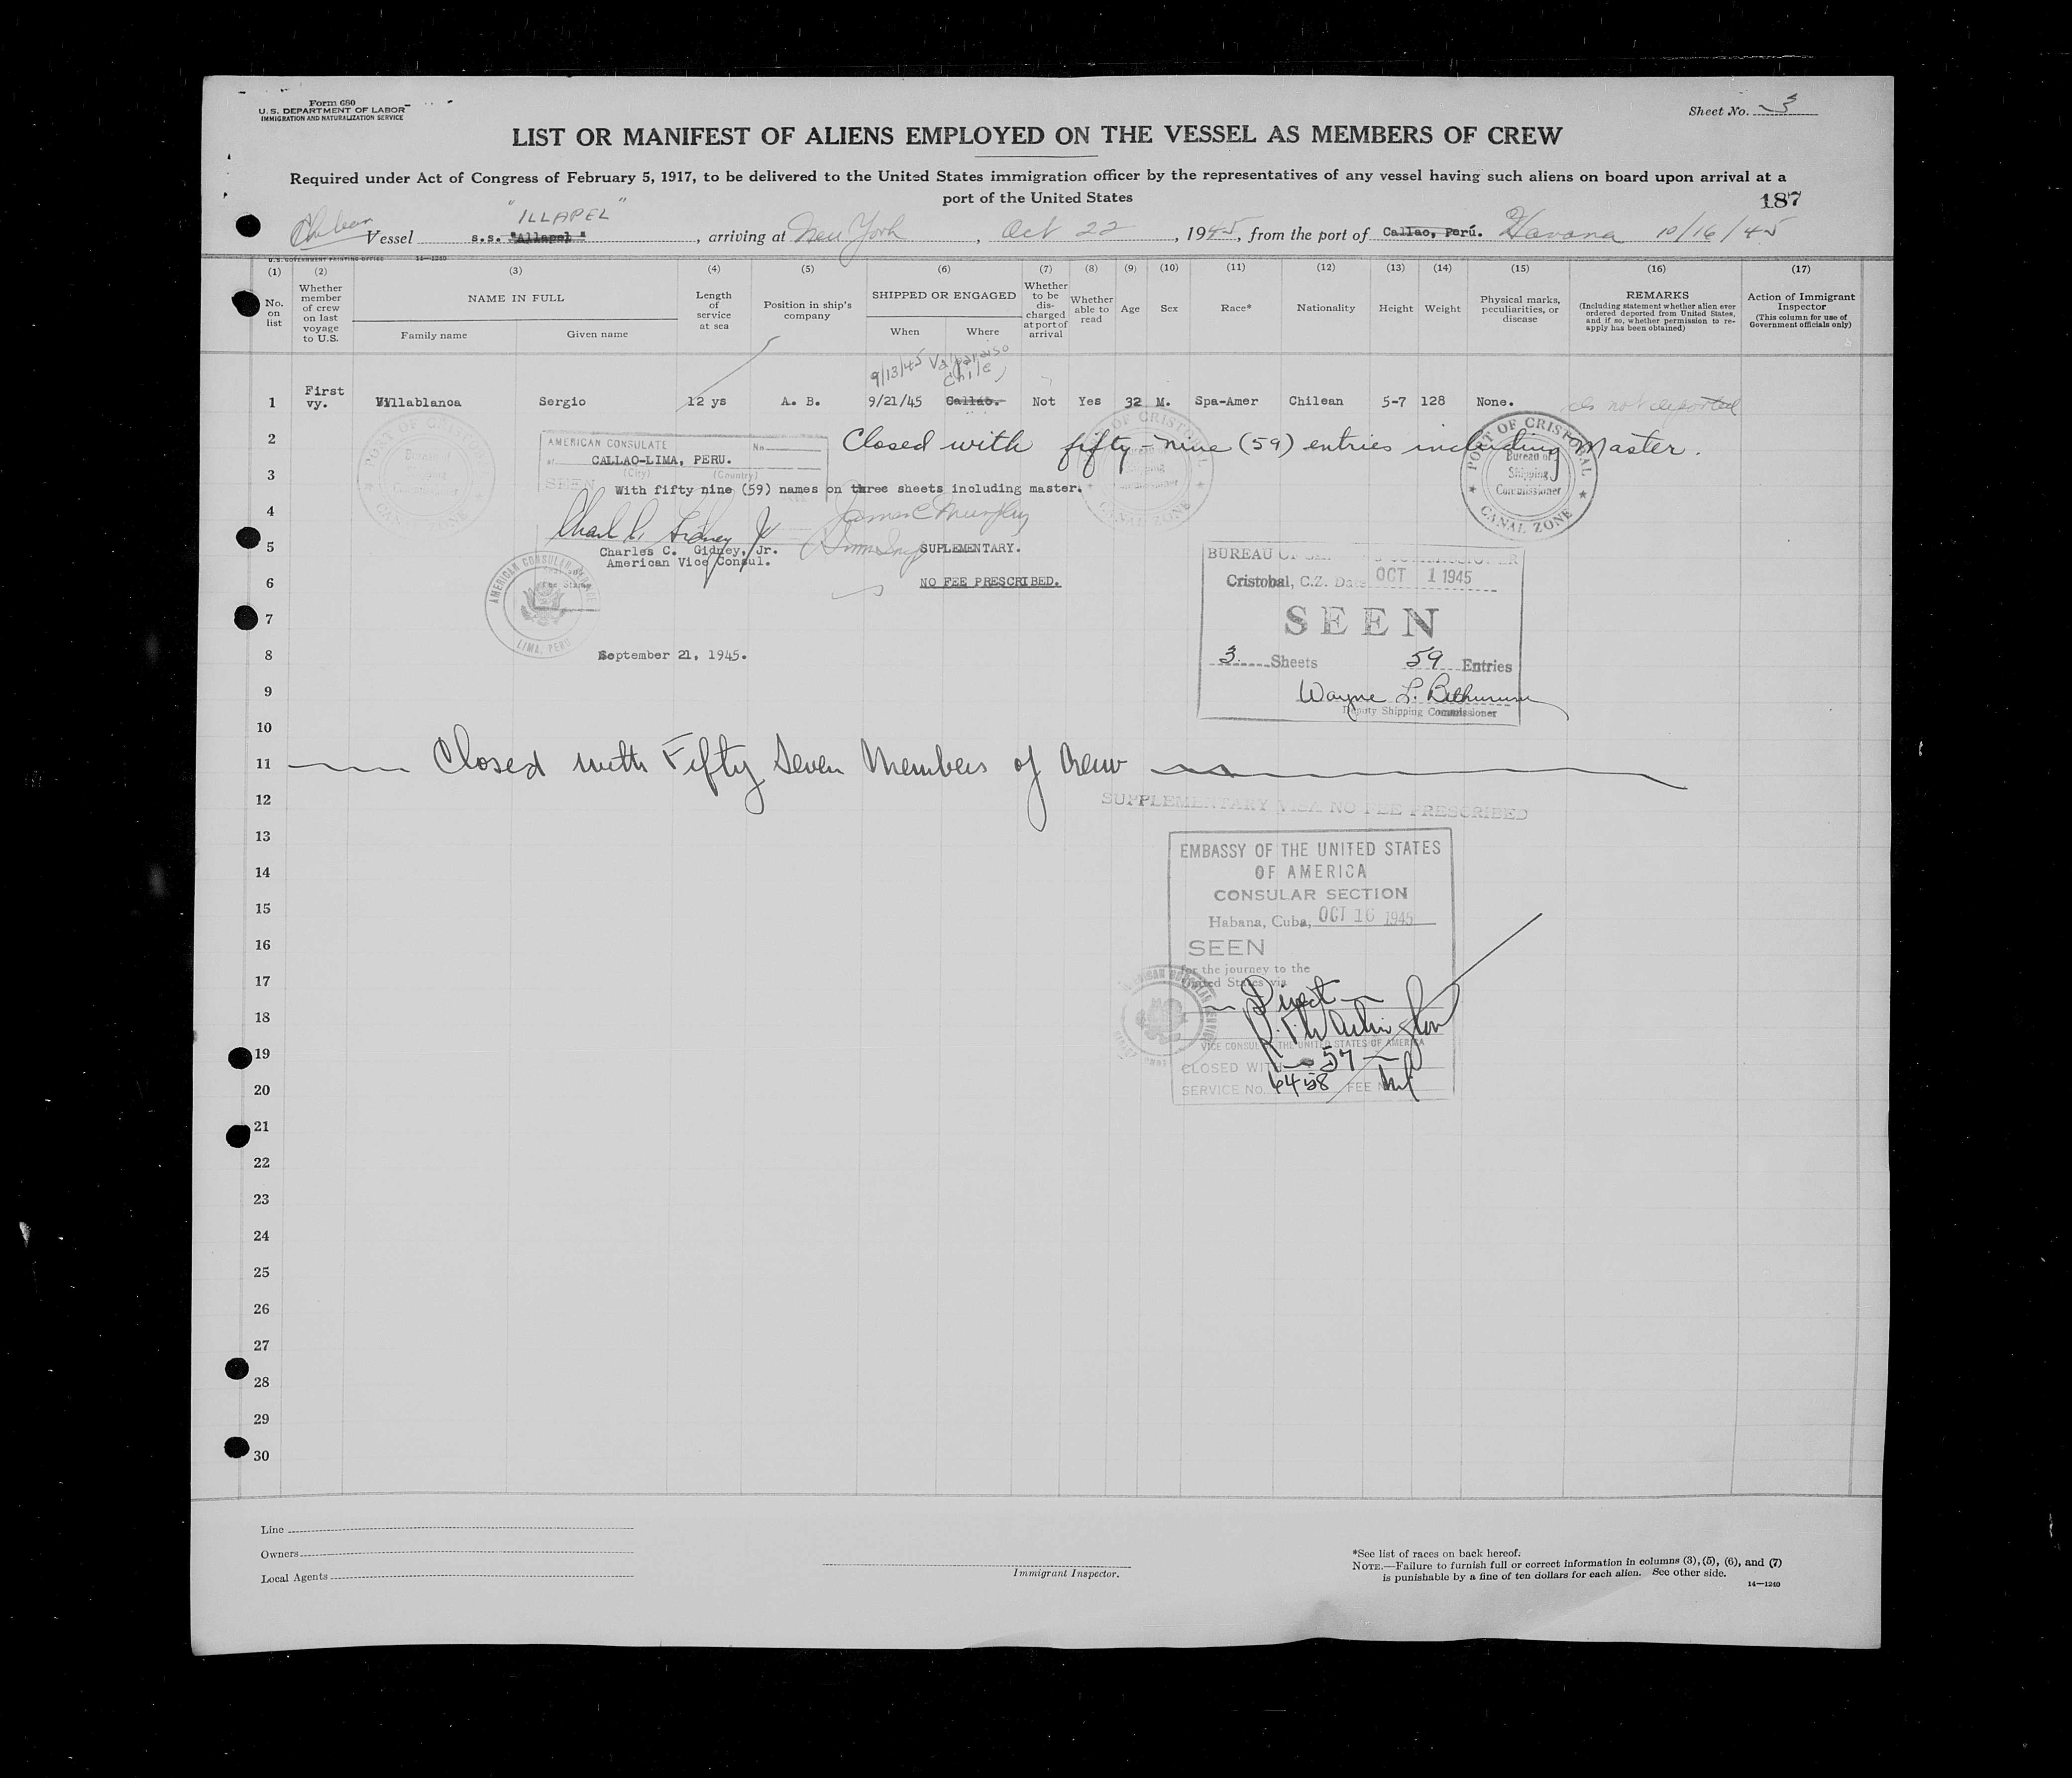 Form 680
U. S. DEPARTMENT OF LABOR
IMMIGRATION AND NATURALIZATION SERVICE
Sheet No. 3
LIST OR MANIFEST OF ALIENS EMPLOYED ON THE VESSEL AS MEMBERS OF CREW
Required under Act of Congress of February 5, 1917, to be delivered to the United States immigration officer by the representatives of any vessel having such aliens on board upon arrival at a
port of the United States
187
"ILLAPEL"
Chilean Vessel s.s. "Allapel", arriving at New York, Oct 22, 1945, from the port of Callao, Perú. Havana 10/16/45
U.S. GOVERNMENT PRINTING OFFICE 14—1240
(1) (2) (3) (4) (5) (6) (7) (8) (9) (10) (11) (12) (13) (14) (15) (16) (17)
No. on list
Whether member of crew on last voyage to U.S.
NAME IN FULL
Family name Given name
Length of service at sea
Position in ship's company
SHIPPED OR ENGAGED
When Where
Whether to be discharged at port of arrival
Whether able to read
Age
Sex
Race*
Nationality
Height
Weight
Physical marks, peculiarities, or disease
REMARKS
(Including statement whether alien ever ordered deported from United States, and if so, whether permission to reapply has been obtained)
Action of Immigrant Inspector
(This column for use of Government officials only)
9/13/45 Valparaiso
Chile
1 First vy. Villablanoa Sergio 12 ys A. B. 9/21/45 Callao. Not Yes 32 M. Spa-Amer Chilean 5-7 128 None. not deported
2 Closed with fifty-nine (59) entries including Master.
AMERICAN CONSULATE No
at CALLAO-LIMA, PERU.
(City) (Country)
3
SEEN
With fifty nine (59) names on three sheets including master.
PORT OF CRISTOBAL
Bureau of
Shipping
Commissioner
CANAL ZONE
PORT OF CRISTOBAL
Bureau of
Shipping
Commissioner
CANAL ZONE
PORT OF CRISTOBAL
Bureau of
Shipping
Commissioner
CANAL ZONE
4
James C Murphy
Charles C. Gidney Jr
5
Charles C. Gidney, Jr.
American Vice Consul.
SUPLEMENTARY.
6
NO FEE PRESCRIBED.
AMERICAN CONSULAR SERVICE
LIMA, PERU
BUREAU OF
Cristobal, C.Z. Date OCT 1 1945
7
SEEN
8
September 21, 1945.
3 Sheets 59 Entries
9
Wayne L. Bethurum
Deputy Shipping Commissioner
10
11 Closed with Fifty Seven Members of Crew
12
SUPPLEMENTARY VISA NO FEE PRESCRIBED
13
EMBASSY OF THE UNITED STATES
14
OF AMERICA
CONSULAR SECTION
15
Habana, Cuba, OCT 16 1945
16
SEEN
for the journey to the
17
United States via
Direct
18
VICE CONSUL OF THE UNITED STATES OF AMERICA
19
CLOSED WITH 57
20
SERVICE No. 6458 FEE
21
22
23
24
25
26
27
28
29
30
Line
Owners
Local Agents
Immigrant Inspector.
*See list of races on back hereof.
NOTE.—Failure to furnish full or correct information in columns (3), (5), (6), and (7)
is punishable by a fine of ten dollars for each alien. See other side.
14—1240